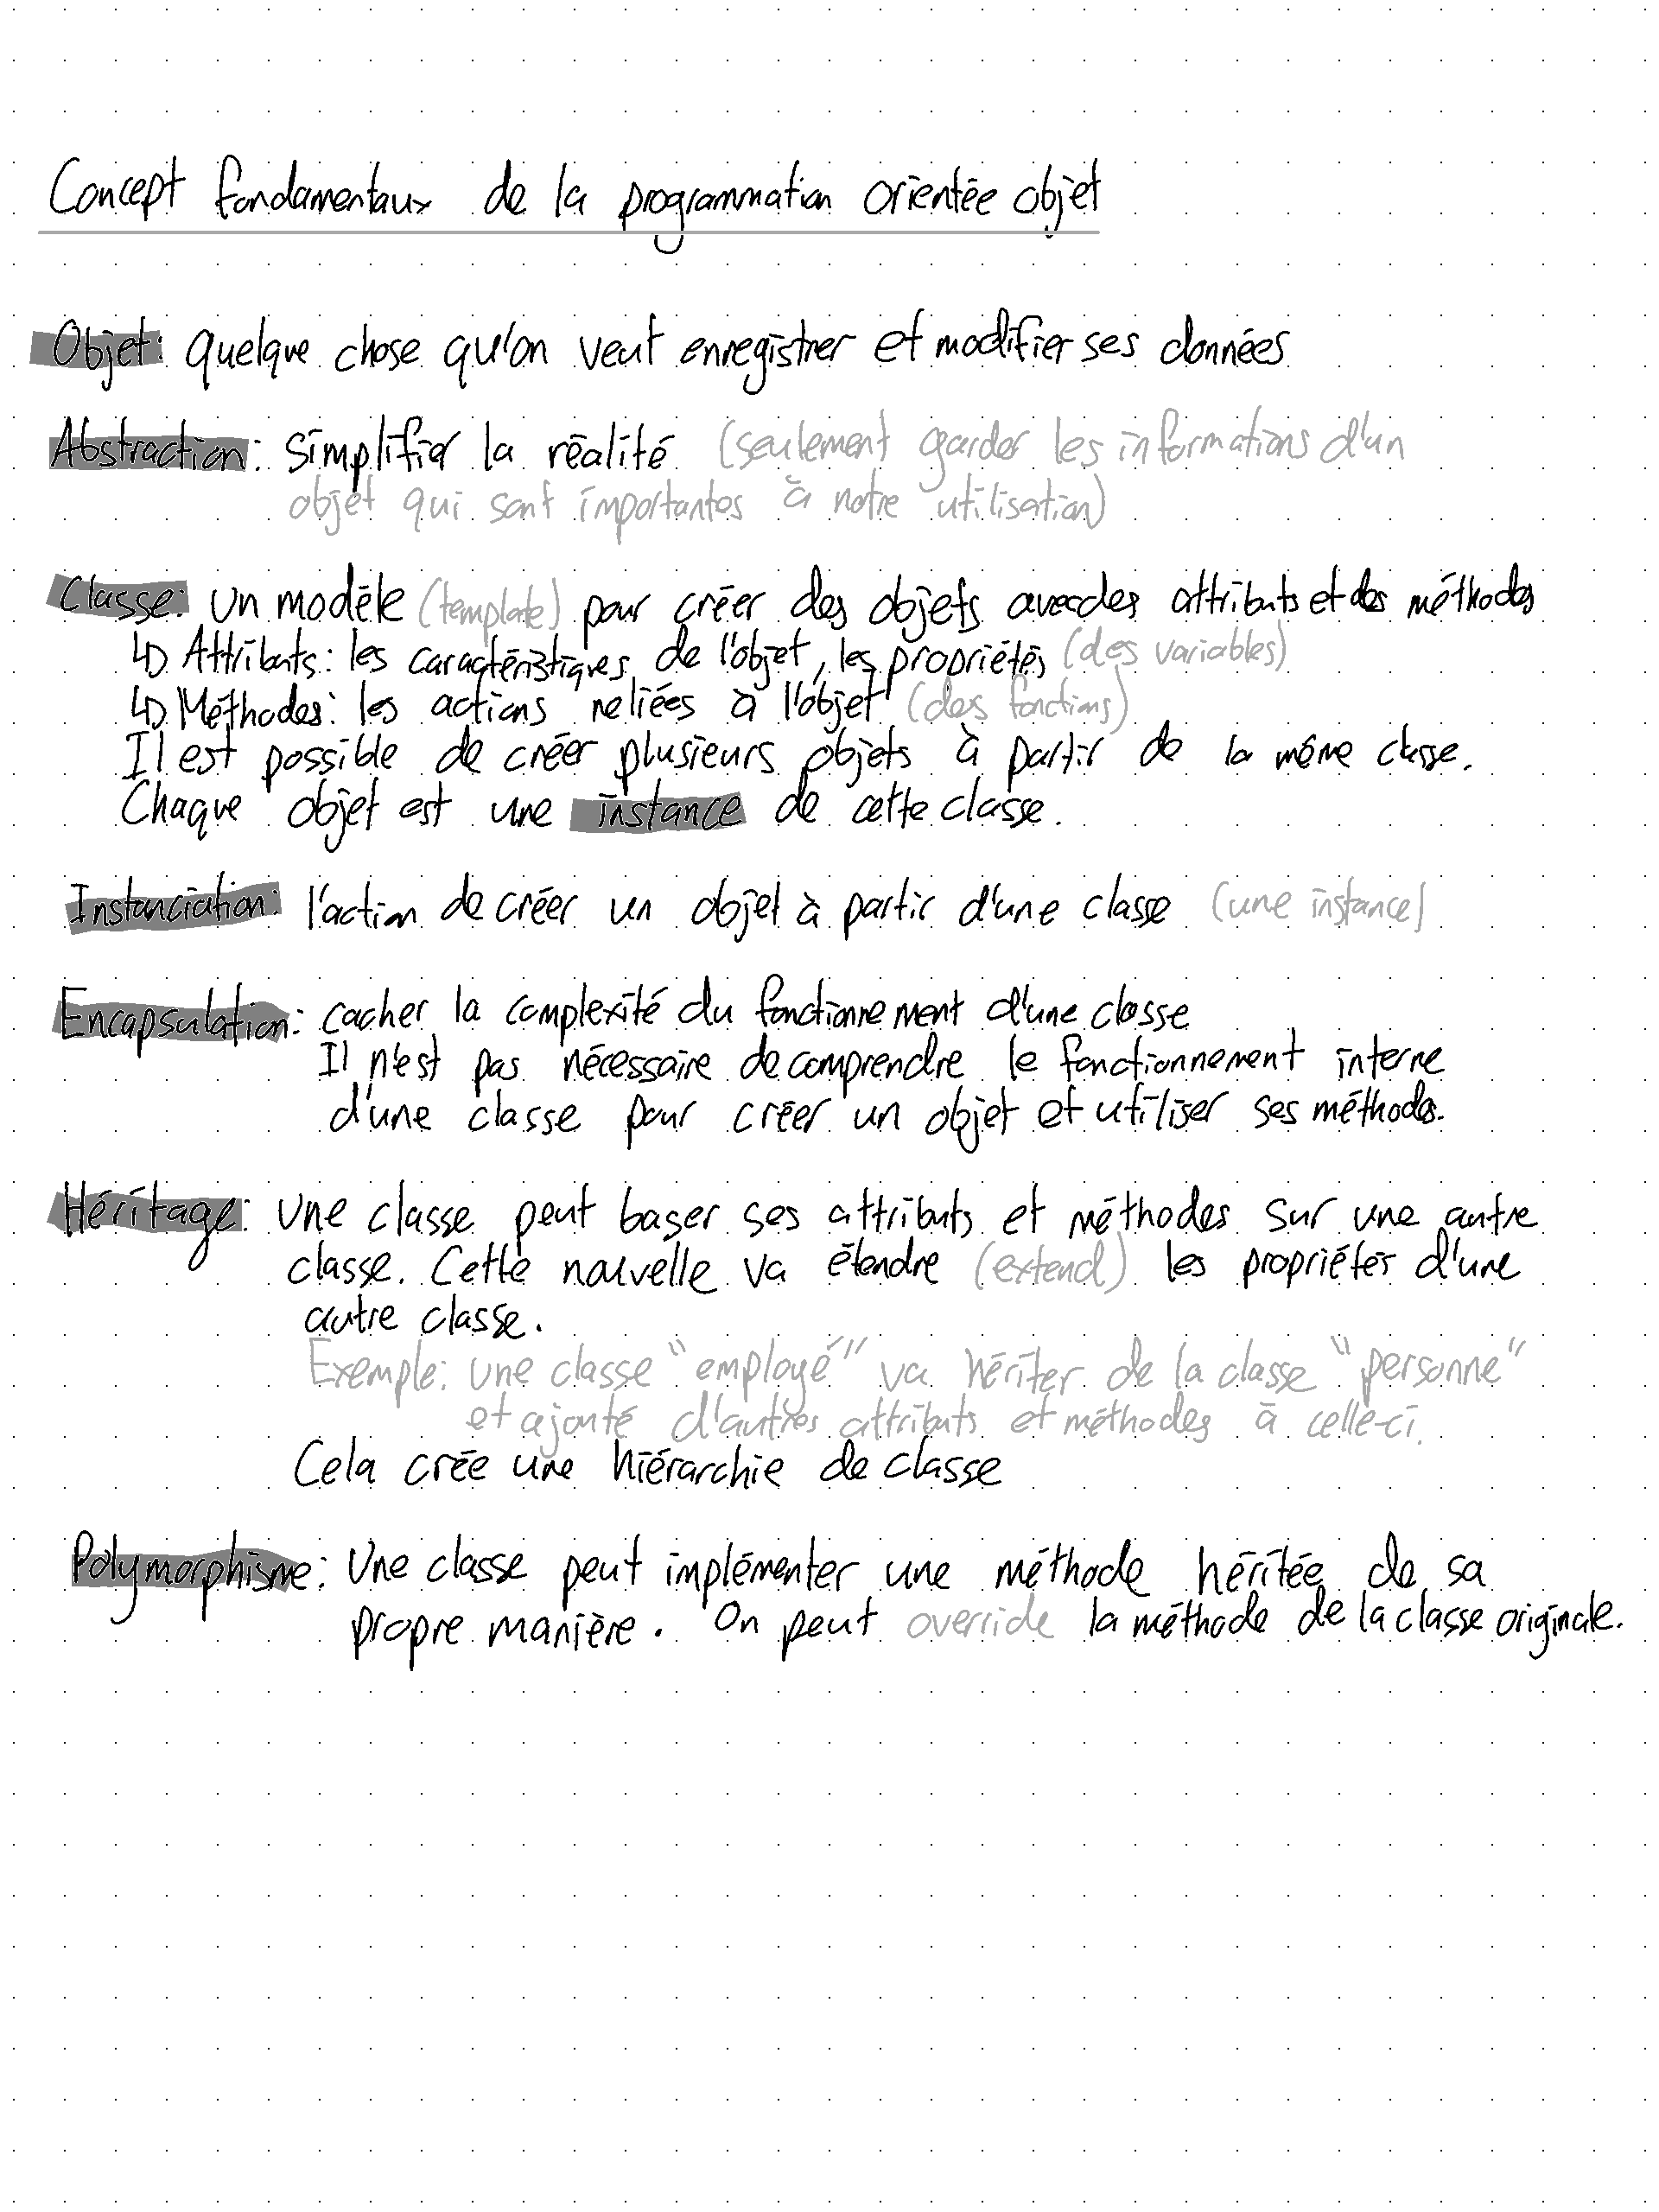 Concept fondamentaux de la programmation orientée objet
Objet: quelque chose qu'on veut enregistrer et modifier ses données
Abstraction: simplifier la réalité (seulement garder les informations d'un
objet qui sont importantes à notre utilisation)
Classe: un modèle (template) pour créer des objets avec des attributs et des méthodes
↳ Attributs: les caractéristiques de l'objet, les propriétés (des variables)
↳ Méthodes: les actions reliées à l'objet (des fonctions)
Il est possible de créer plusieurs objets à partir de la même classe.
Chaque objet est une instance de cette classe.
Instanciation: l'action de créer un objet à partir d'une classe (une instance)
Encapsulation: cacher la complexité du fonctionnement d'une classe
Il n'est pas nécessaire de comprendre le fonctionnement interne
d'une classe pour créer un objet et utiliser ses méthodes.
Héritage: une classe peut baser ses attributs et méthodes sur une autre
classe. Cette nouvelle va étendre (extend) les propriétés d'une
autre classe.
Exemple: une classe "employé" va hériter de la classe "personne"
et ajouté d'autres attributs et méthodes à celle-ci.
Cela crée une hiérarchie de classe
Polymorphisme: Une classe peut implémenter une méthode héritée de sa
propre manière. On peut override la méthode de la classe originale.